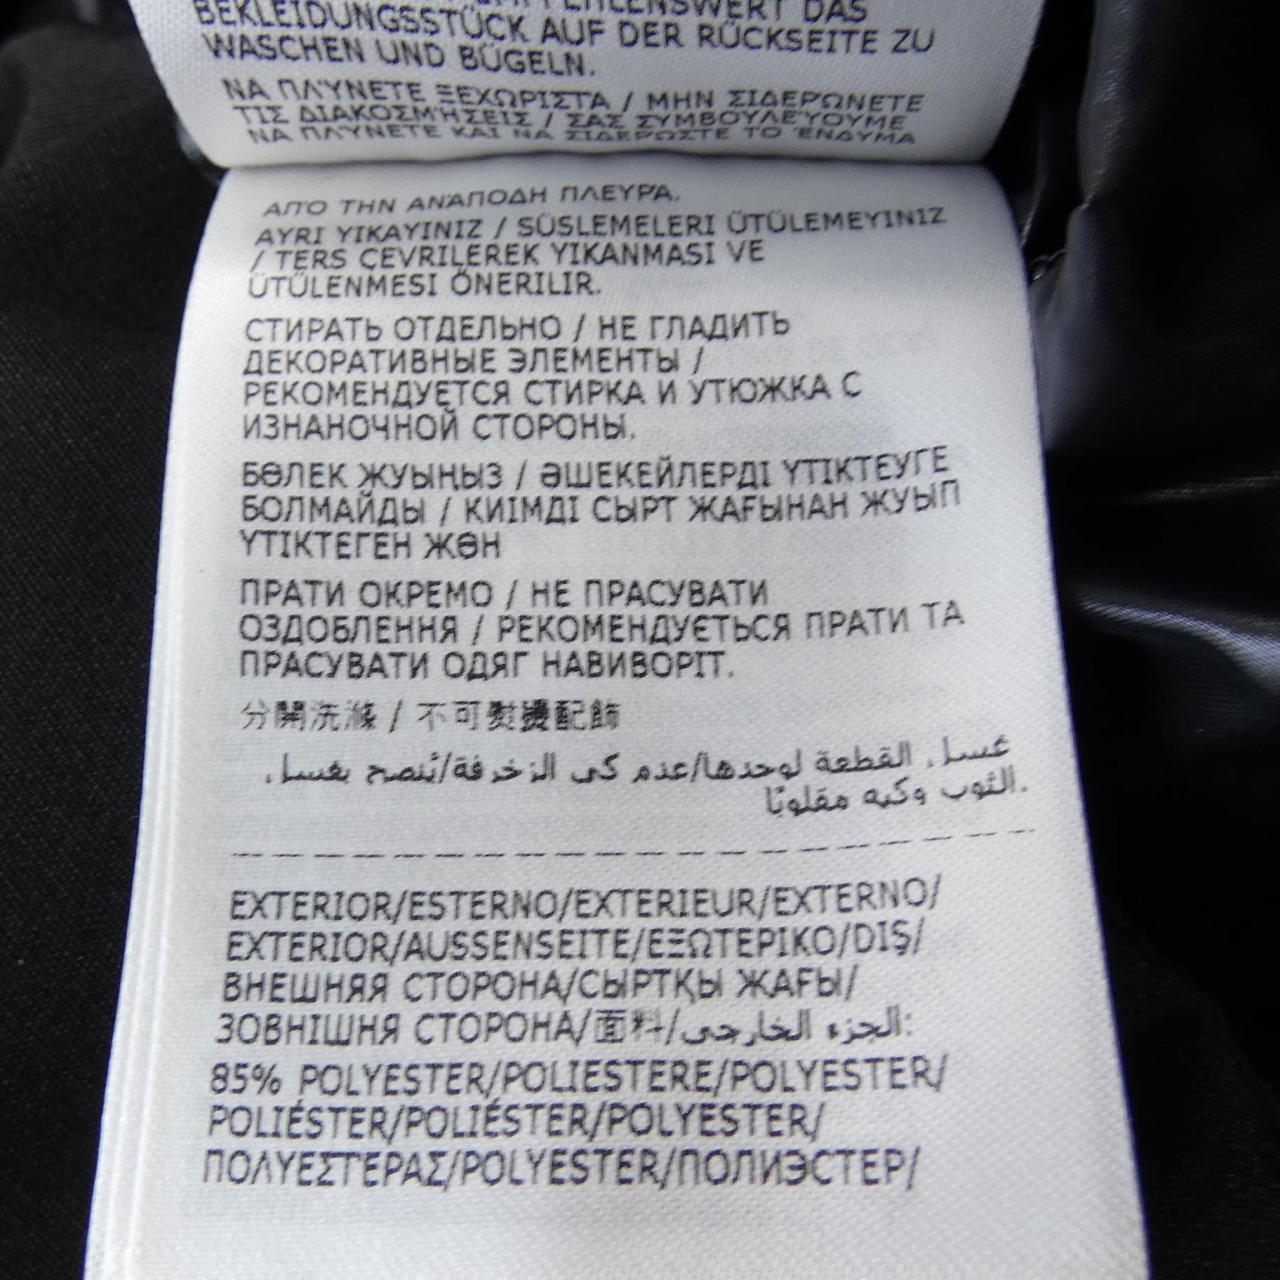 EMPFEHLENSWERT DAS
BEKLEIDUNGSSTÜCK AUF DER RÜCKSEITE ZU
WASCHEN UND BÜGELN.
ΝΑ ΠΛΎΝΕΤΕ ΞΕΧΩΡΙΣΤΑ / ΜΗΝ ΣΙΔΕΡΏΝΕΤΕ
ΤΙΣ ΔΙΑΚΟΣΜΉΣΕΙΣ / ΣΑΣ ΣΥΜΒΟΥΛΕΎΟΥΜΕ
ΝΑ ΠΛΎΝΕΤΕ ΚΑΙ ΝΑ ΣΙΔΕΡΏΣΤΕ ΤΟ ΈΝΔΥΜΑ
ΑΠΌ ΤΗΝ ΑΝΆΠΟΔΗ ΠΛΕΥΡΆ.
AYRI YIKAYINIZ / SÜSLEMELERI ÜTÜLEMEYINIZ
/ TERS ÇEVRILEREK YIKANMASI VE
ÜTÜLENMESI ÖNERILIR.
СТИРАТЬ ОТДЕЛЬНО / НЕ ГЛАДИТЬ
ДЕКОРАТИВНЫЕ ЭЛЕМЕНТЫ /
РЕКОМЕНДУЕТСЯ СТИРКА И УТЮЖКА С
ИЗНАНОЧНОЙ СТОРОНЫ.
БӨЛЕК ЖУЫҢЫЗ / ӘШЕКЕЙЛЕРДІ ҮТІКТЕУГЕ
БОЛМАЙДЫ / КИІМДІ СЫРТ ЖАҒЫНАН ЖУЫП
ҮТІКТЕГЕН ЖӨН
ПРАТИ ОКРЕМО / НЕ ПРАСУВАТИ
ОЗДОБЛЕННЯ / РЕКОМЕНДУЄТЬСЯ ПРАТИ ТА
ПРАСУВАТИ ОДЯГ НАВИВОРІТ.
分開洗滌 / 不可熨燙配飾
غسل القطعة لوحدها/عدم كى الزخرفة/يُنصح بغسل
الثوب وكيه مقلوبًا.
EXTERIOR/ESTERNO/EXTERIEUR/EXTERNO/
EXTERIOR/AUSSENSEITE/ΕΞΩΤΕΡΙΚΟ/DIŞ/
ВНЕШНЯЯ СТОРОНА/СЫРТҚЫ ЖАҒЫ/
ЗОВНІШНЯ СТОРОНА/面料/الجزء الخارجى:
85% POLYESTER/POLIESTERE/POLYESTER/
POLIÉSTER/POLIÉSTER/POLYESTER/
ΠΟΛΥΕΣΤΕΡΑΣ/POLYESTER/ПОЛИЭСТЕР/